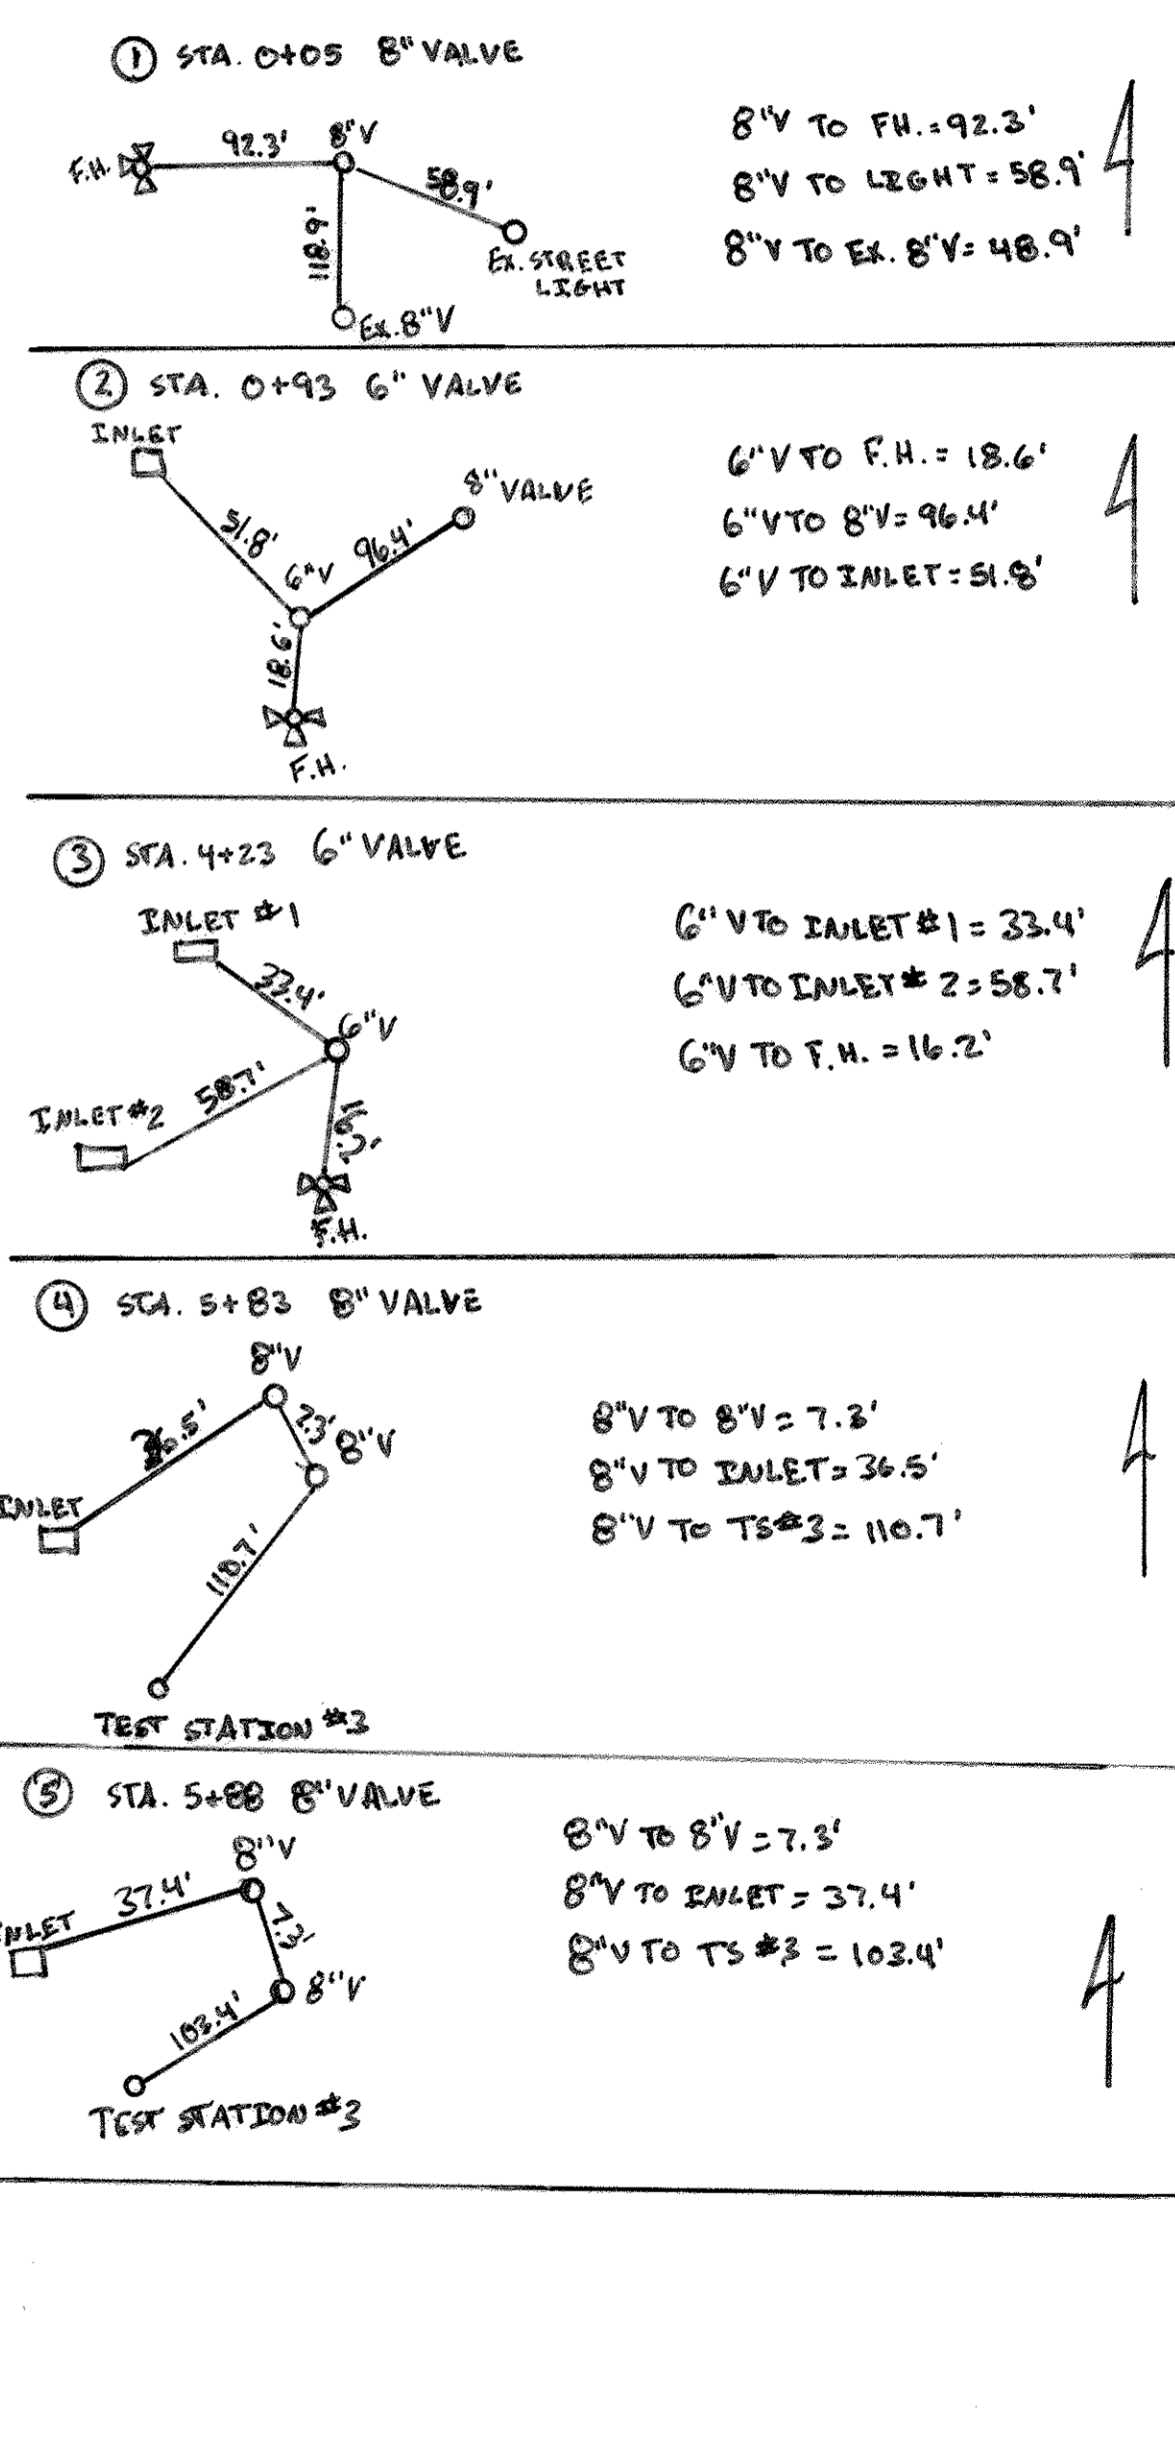 ① STA. 0+05 8" VALVE
F.H.
92.3'
8"V
58.9'
118.9'
EX. STREET
LIGHT
EX. 8"V
8"V TO FH. = 92.3'
8"V TO LIGHT = 58.9'
8"V TO EX. 8"V = 48.9'
② STA. 0+93 6" VALVE
INLET
51.8'
6"V
96.4'
8" VALVE
18.6'
F.H.
6"V TO F.H. = 18.6'
6"V TO 8"V = 96.4'
6"V TO INLET = 51.8'
③ STA. 4+23 6" VALVE
INLET #1
33.4'
6"V
58.7'
INLET #2
16.2'
F.H.
6"V TO INLET #1 = 33.4'
6"V TO INLET # 2 = 58.7'
6"V TO F.H. = 16.2'
④ STA. 5+83 8" VALVE
8"V
36.5'
7.3'
8"V
INLET
110.7'
TEST STATION #3
8"V TO 8"V = 7.3'
8"V TO INLET = 36.5'
8"V TO TS#3 = 110.7'
⑤ STA. 5+88 8" VALVE
8"V
37.4'
INLET
7.3'
8"V
103.4'
TEST STATION #3
8"V TO 8"V = 7.3'
8"V TO INLET = 37.4'
8"V TO TS #3 = 103.4'